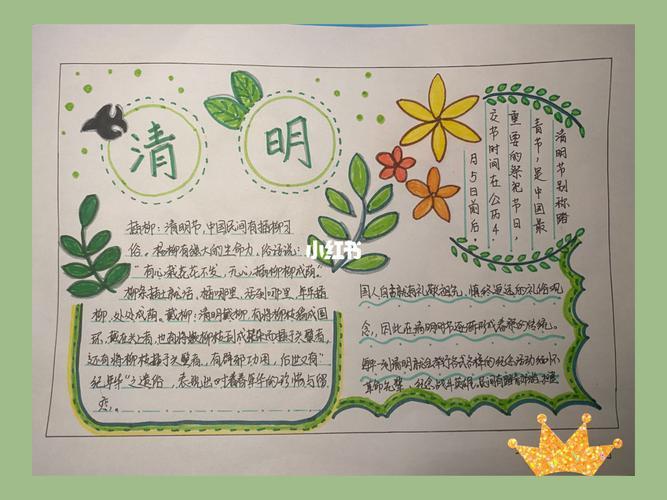 清明
插柳：清明节,中国民间有插柳习
俗。杨柳有强大的生命力，俗话说：
“有心栽花花不发，无心插柳柳成荫。”
柳条插土就活，插哪里，活到哪里，年年插
柳，处处成荫。戴柳：清明戴柳，有将柳枝编成圆
环，戴在头上者，也有将嫩柳枝
还有将柳枝插于头髻者，有辟邪功用，后世又有“
纪年华”之遗俗，表现出对青春年华的珍惜与留
恋。
清明节别称踏
青节，是中国最
重要的祭祀节日，
交节时间在公历4
月5日前后
小红书
国人自古就有礼敬祖先，慎终追远的礼俗观
念，因此在清明节逐渐形成
每年一到清明就会举行各式各样的纪念活动
革命先辈，纪念战斗英雄